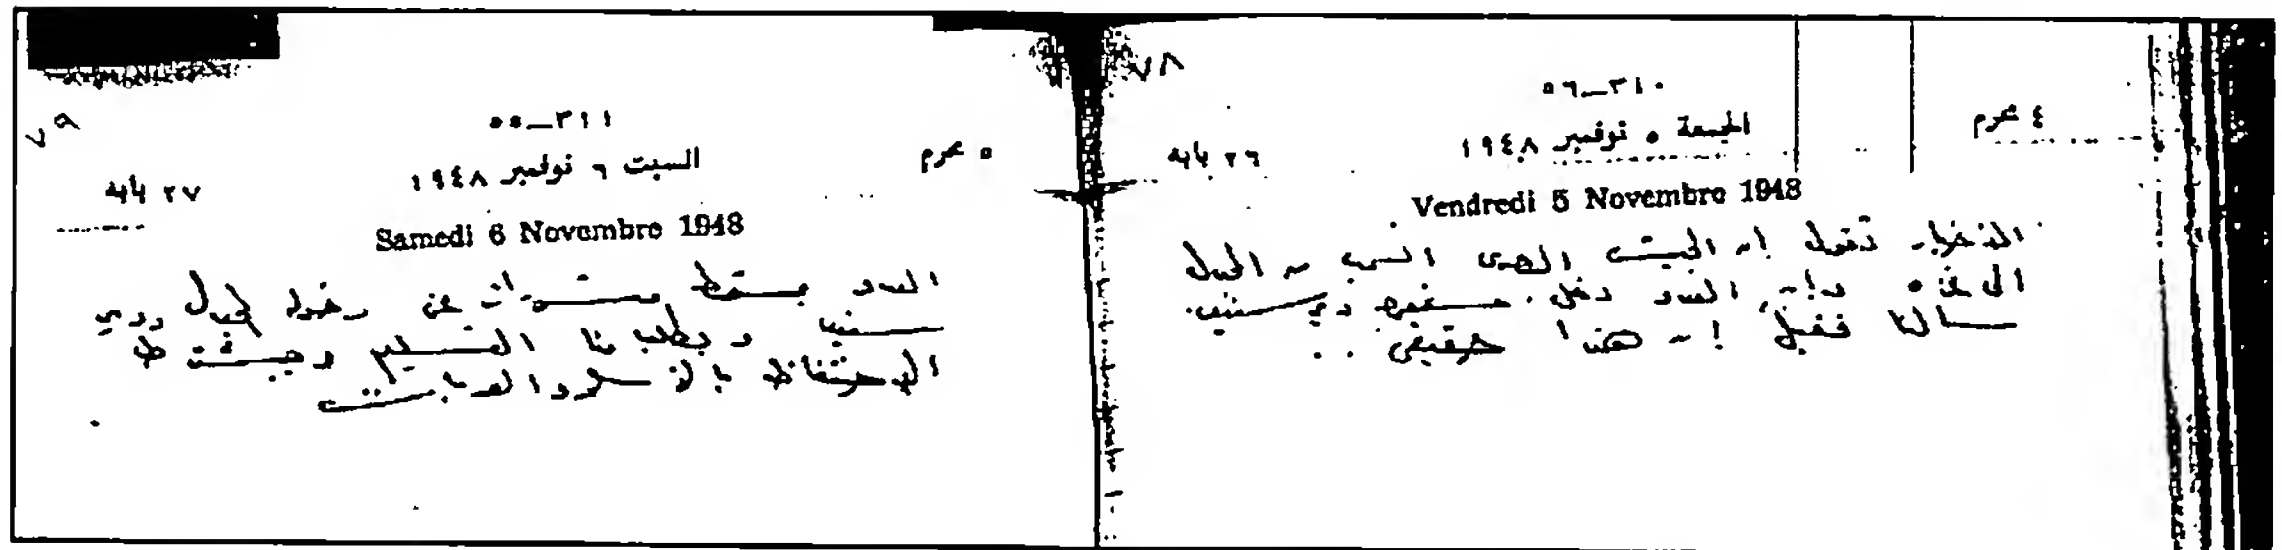 ٧٨
٣١٠—٥٦
٤ محرم
الجمعة ٥ نوفمبر ١٩٤٨
٢٦ بابه
Vendredi 5 Novembre 1948
الأخبار تقول إن الجيش المصرى انسحب من المجدل
الى غزه وإن العدو دخل
سألنا فقيل إن هذا حقيقى ..
٧٩
٣١١—٥٥
٥ محرم
السبت ٦ نوفمبر ١٩٤٨
٢٧ بابه
Samedi 6 Novembre 1948
العدو يسقط منشورات عن دخوله المجدل ودير
سنيد ويطلب منا التسليم
الاحتفاظ